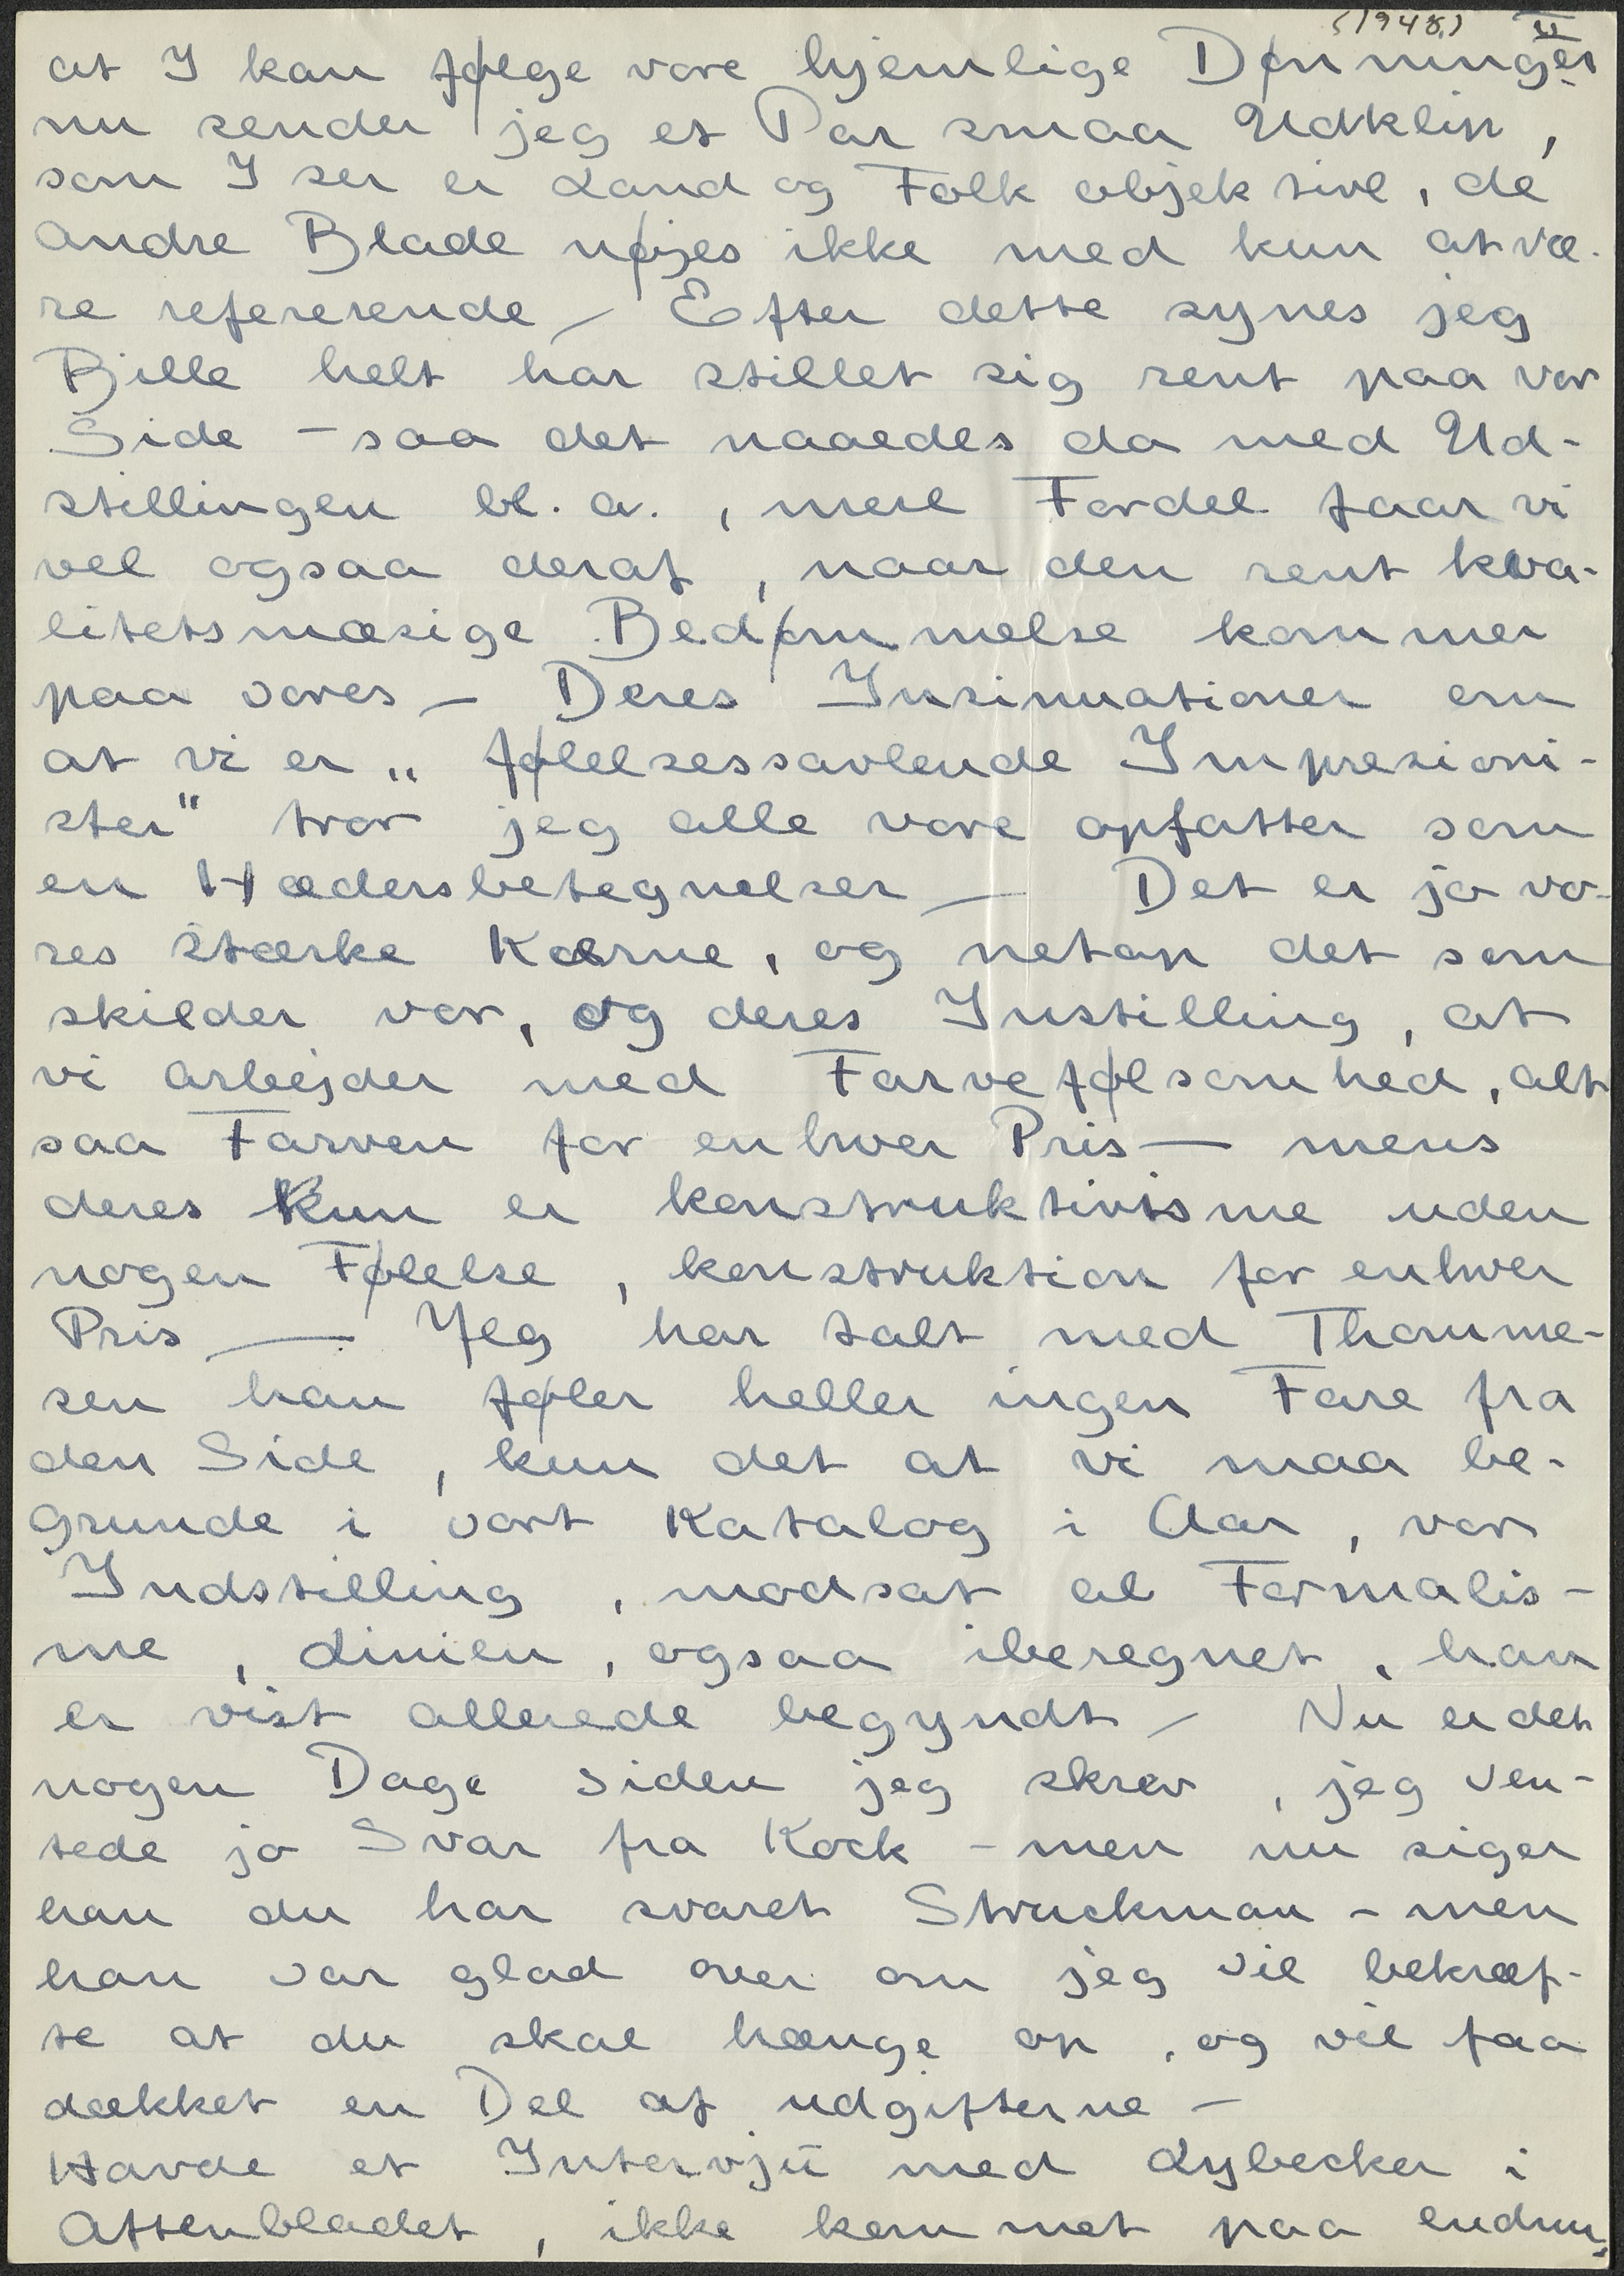 (1948.) II
at I kan følge vore hjemlige Dønninger
nu sender jeg et Par smaa Udklip,
som I ser er Land og Folk objektive, de
andre Blade nøjes ikke med kun at væ-
re refererende – Efter dette synes jeg
Bille helt har stillet sig rent paa vor
Side – saa det naaedes da med Ud-
stillingen bl. a., mere Fordel faar vi
vel ogsaa deraf, naar den rent kva-
litetsmæsige Bedømmelse kommer
paa vores – Deres Insinuationer om
at vi er „følelsessavlende Impresioni-
ster" tror jeg alle vore opfatter som
en Hædersbetegnelser – Det er jo vo-
res stærke Kærne, og netop det som
skilder vor, og deres Instilling, at
vi arbejder med Farvefølsomhed, alt
saa Farven for enhver Pris – mens
deres kun er konstruktivisme uden
nogen Følelse, konstruktion for enhver
Pris – Jeg har talt med Thomme-
sen han føler heller ingen Fare fra
den Side, kun det at vi maa be-
grunde i vort Katalog i Aar, vor
Indstilling, modsat al Formalis-
me, Linien, ogsaa iberegnet, han
er vist allerede begyndt – Nu er det
nogen Dage siden jeg skrev, jeg ven-
tede jo Svar fra Kock – men nu siger
han du har svaret Struckman – men
han var glad over om jeg vil bekræf-
te at du skal hænge op, og vil faa
dækket en Del af udgifterne –
Havde et Intervju med Lybecker i
Aftenbladet, ikke kommet paa endnu,